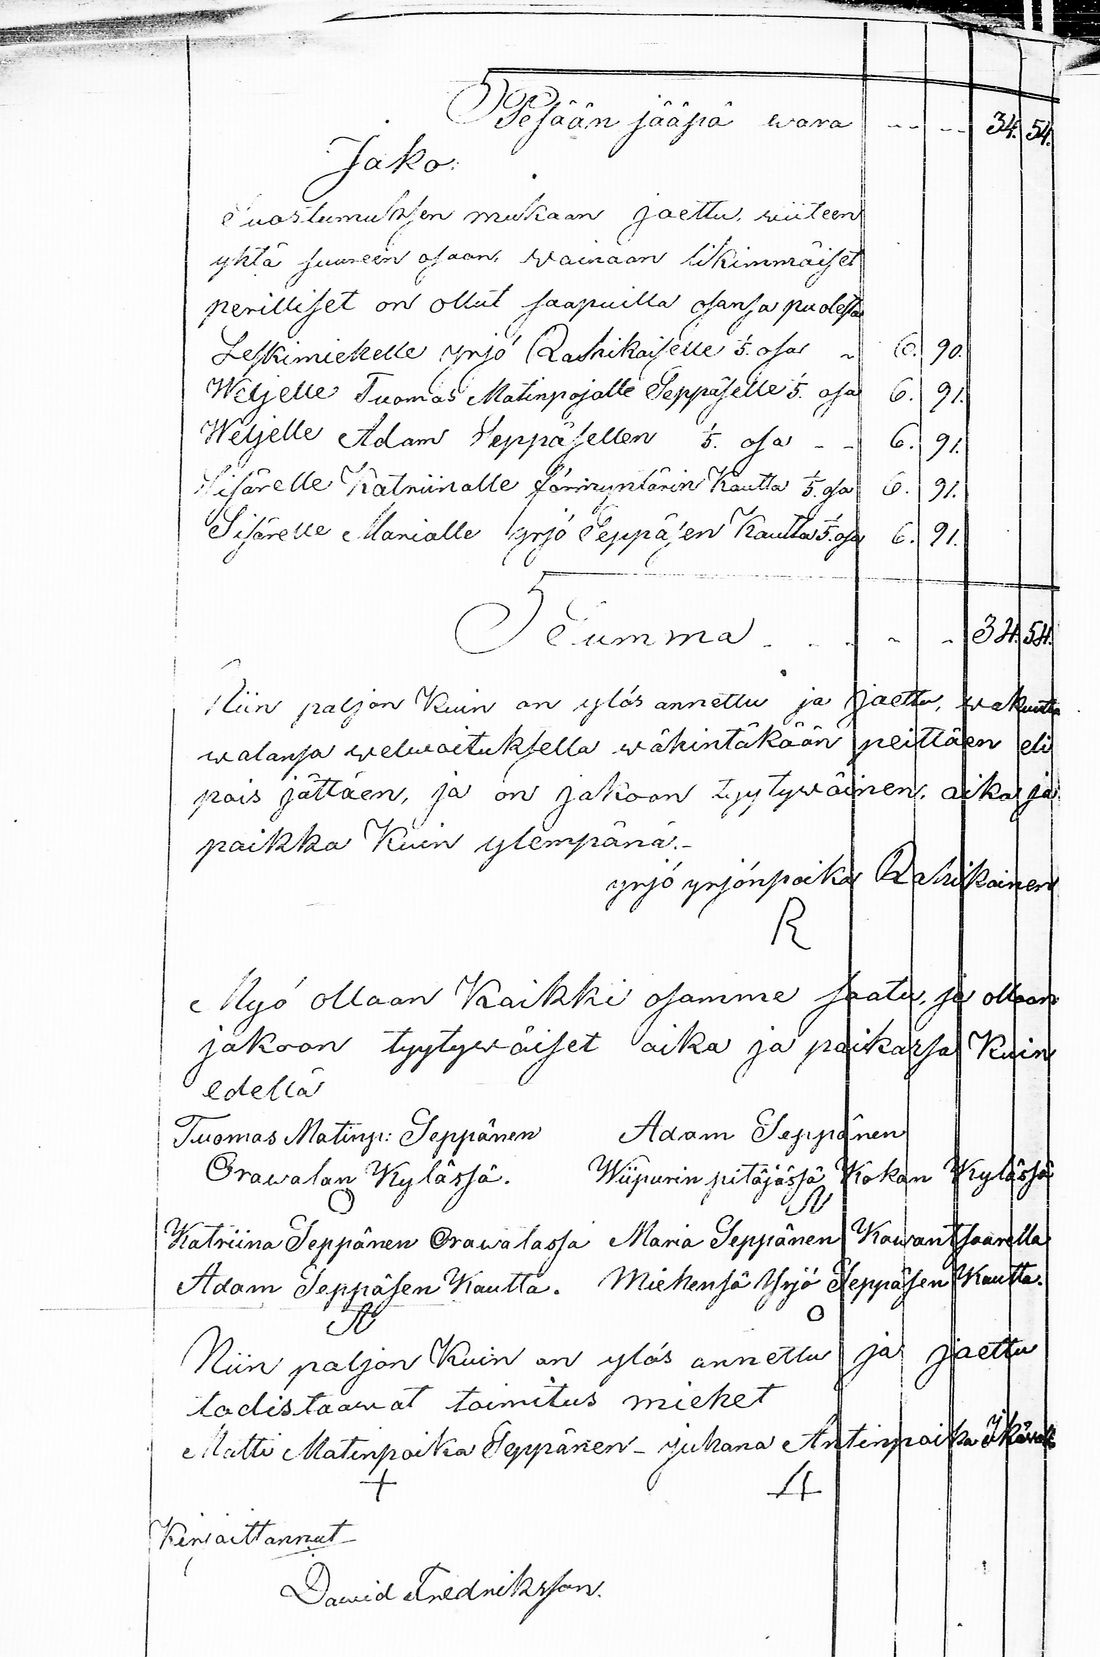 Pesään jääpä wara - - - - 34. 54.
Jako:
Suostumuksen mukaan jaettu, wiiteen
yhtä suureen osaan, wainaan likimmäiset
perilliset on ollut saapuilla osansa puolesta
Leskimiehelle yrjö Rashikaiselle 1/5. osa 6. 90.
Weljelle Tuomas Matinpojalle Seppäselle 1/5. osa 6. 91.
Weljelle Adam Seppäsellen 1/5. osa - - 6. 91.
Sisärelle Katriinalle förmyntärin Kautta 1/5. osa 6. 91.
Sisärelle Marialle Yrjö Seppäsen Kautta 1/5. osa 6. 91.
Summa - - - - - 34. 54.
Niin paljon Kuin on ylös annettu ja jaettu, wakuutta
walansa welwoituksella wähintäkään peittäen eli
pois jättäen, ja on jakoon tyytywäinen. aika ja
paikka Kuin ylempänä.-
yrjö yrjönpoika Rashikainen
R
Myö ollaan Kaikki osamme saatu, ja ollaan
jakoon tyytywäiset aika ja paikassa Kuin
edellä
Tuomas Matinp: Seppänen Adam Seppänen
Orawalan Kylässä. Wiipurin pitäjässä Kokan Kylässä
Katriina Seppänen Orawalassa Maria Seppänen Kawantsaarella
Adam Seppäsen Kautta. Miehensä Yrjö Seppäsen Kautta.
Niin paljon Kuin on ylös annettu ja jaettu
todistaawat toimitus miehet
Matti Matinpoika Seppänen - juhana Antinpoika
Kirjoittannut
Dawid Fredriksson.